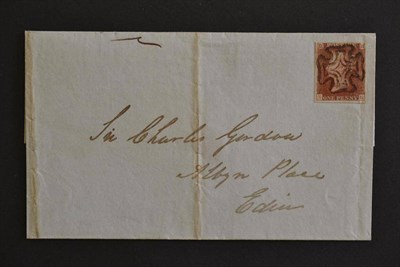 ONE PENNY
Sir Charles Gordon
Albyn Place
Edin